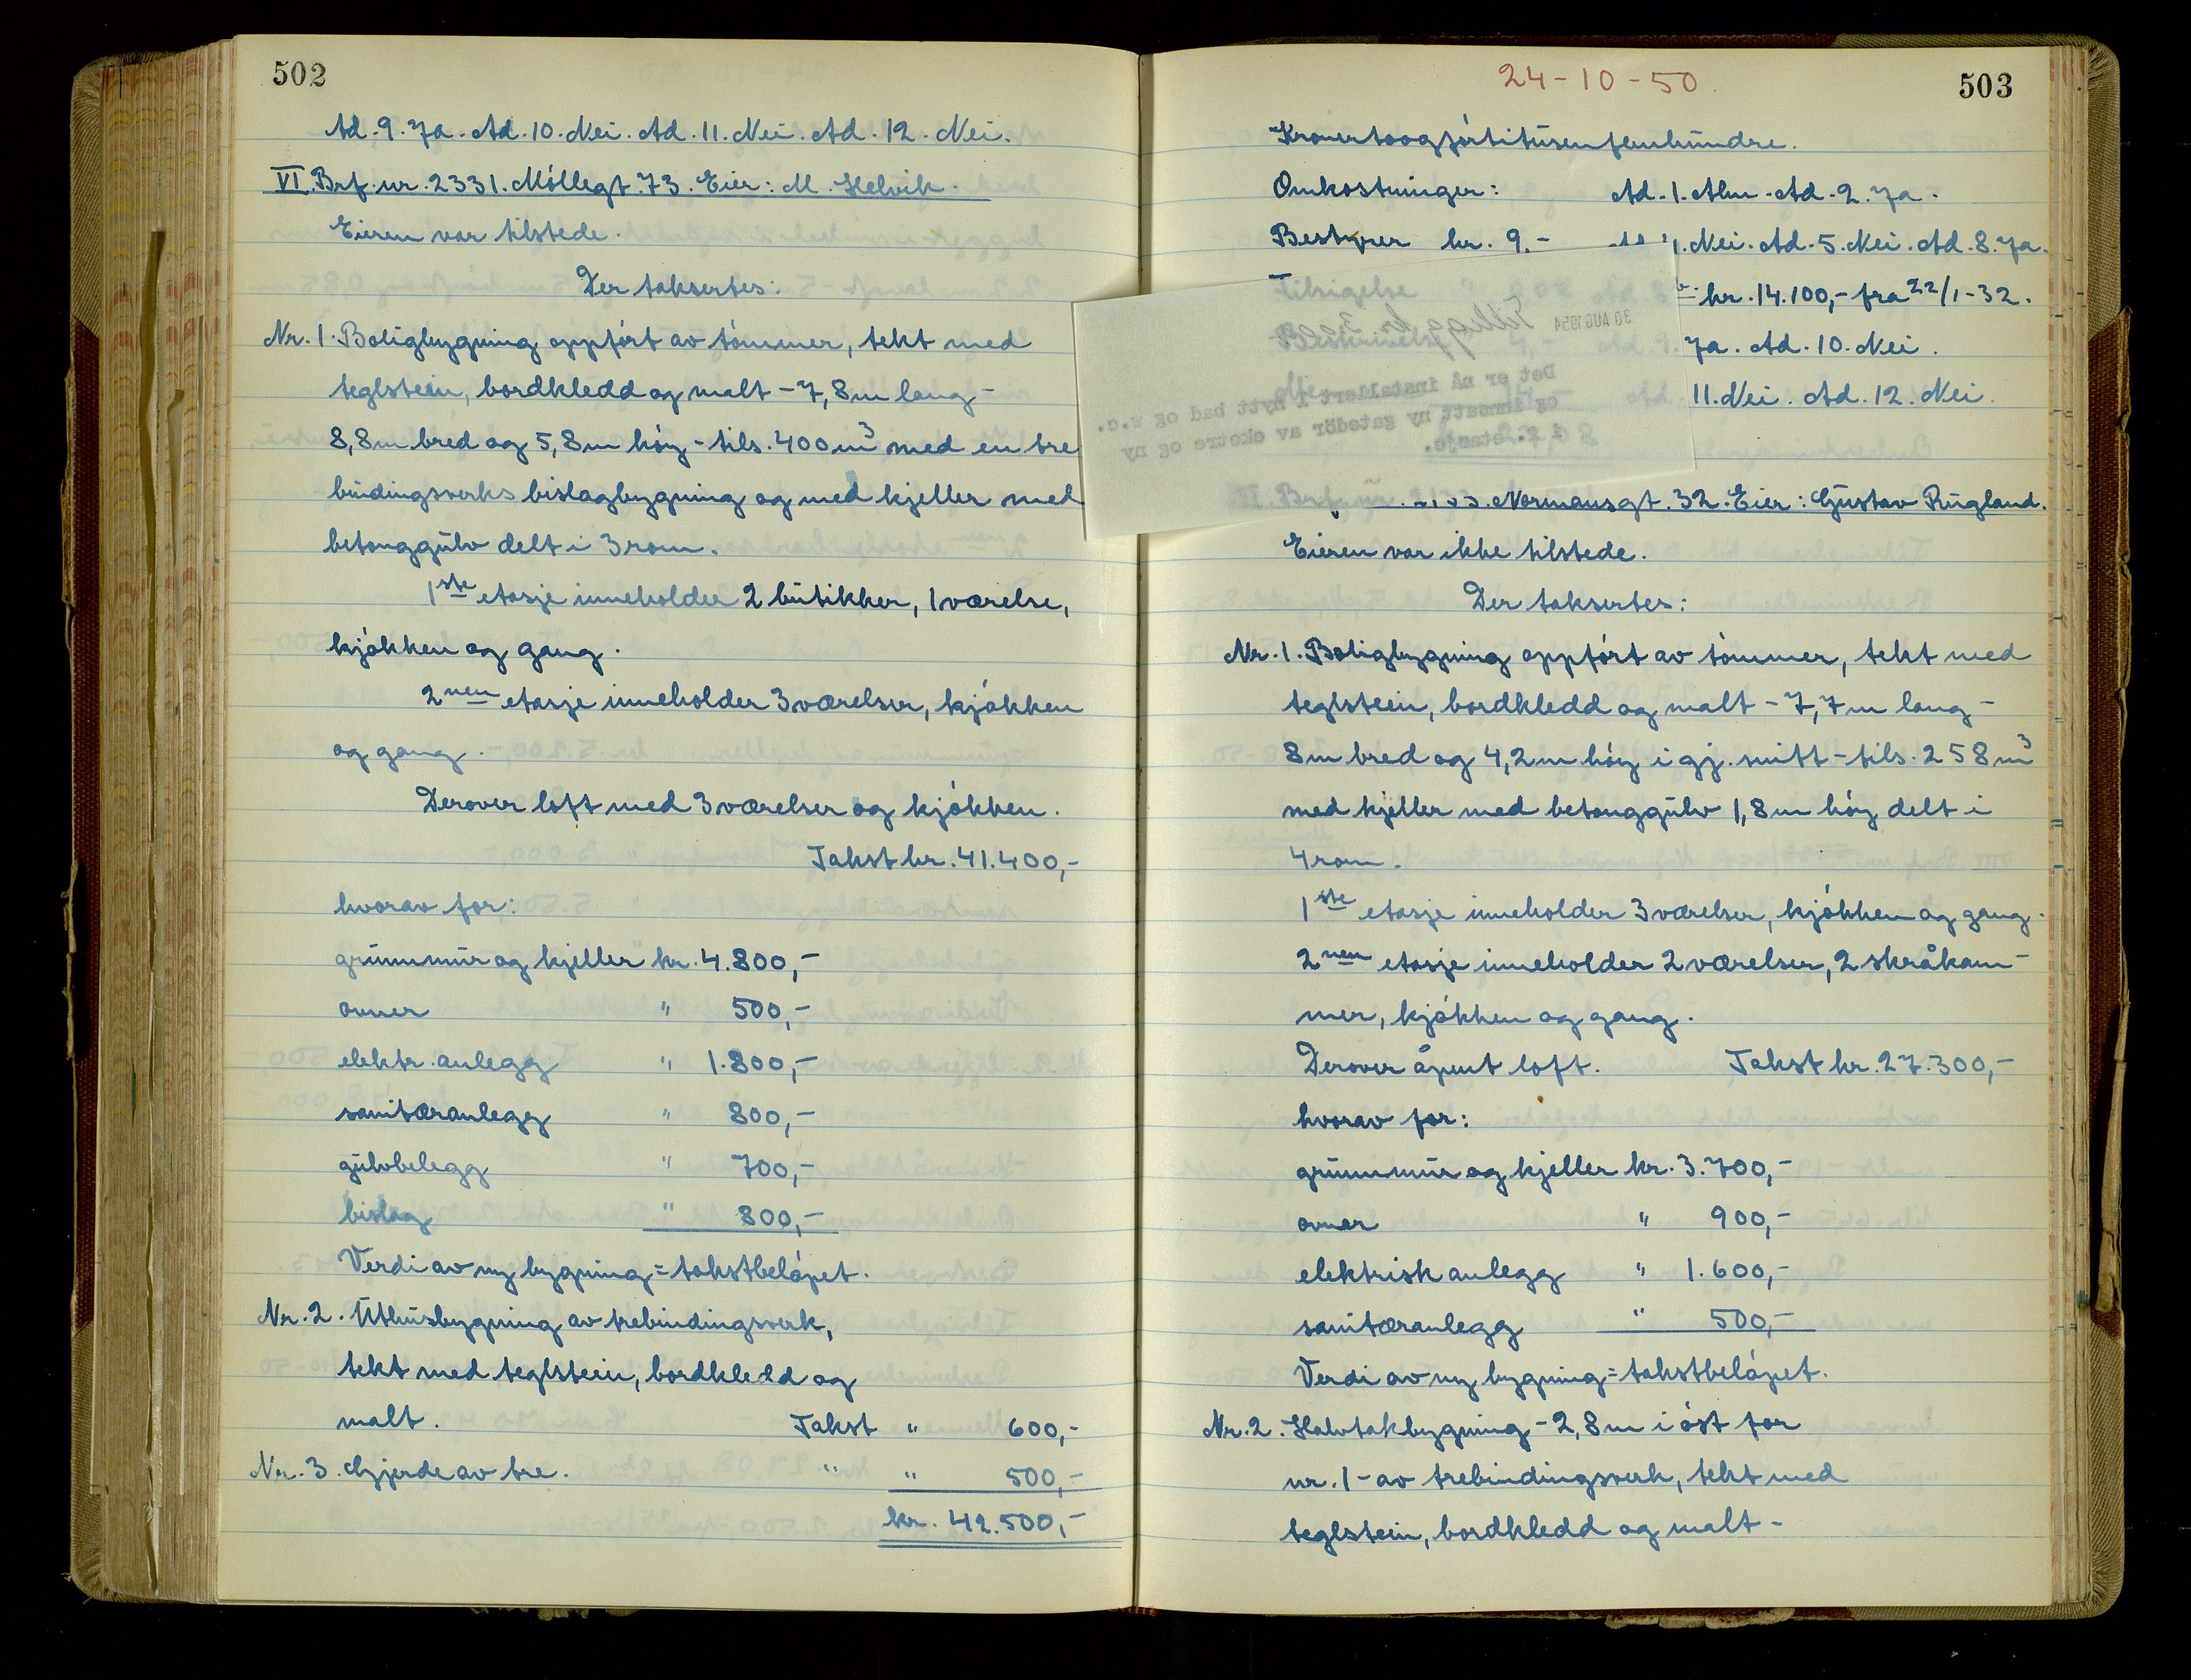 502
Ad. 9. Ja. Ad. 10. Nei. Ad. 11. Nei. Ad. 12. Nei.
VI. Brf. nr. 2331. Møllegt. 73. Eier: M. Helvik.
Eieren var tilstede.
Der taksertes:
Nr. 1. Boligbygning oppført av tømmer, tekt med
teglstein, bordkledd og malt - 7,8 m lang -
8,8 m bred og 5,8 m høy - tils. 400 m³ med en tre
bindingsverks bislagbygning og med kjeller med
betonggulv delt i 3 rom.
1ste etasje inneholder 2 butikker, 1 værelse,
kjøkken og gang.
2nen etasje inneholder 3 værelser, kjøkken
og gang.
Derover loft med 3 værelser og kjøkken.
Takst kr. 41.400,-
hvorav for:
grunnmur og kjeller kr. 4.800,-
ovner " 500,-
elektr. anlegg " 1.800,-
sanitæranlegg " 800,-
gulvbelegg " 700,-
bislag " 800,-
Verdi av ny bygning = takstbeløpet.
Nr. 2. Uthusbygning av trebindingsverk,
tekt med teglstein, bordkledd og
malt. Takst " 600,-
Nr. 3. Gjerde av tre. " " 500,-
kr. 42.500,-
24-10-50.
503
Kronertoogførtitusenfemhundre.
Omkostninger: Ad. 1. Alm. Ad. 2. Ja.
Bestyrer kr. 9.- Nei. Ad. 5. Nei. Ad. 8. Ja.
Tilsigelse kr. 14.100,- fra 22/1-32.
Ja. Ad. 10. Nei.
11. Nei. Ad. 12. Nei.
30 AUG 1954
Det er nå installert i nytt bad og w.c.
og innsatt ny gatedør av eketre og ny
i 2. etasje.
Normansgt. 32. Eier: Gustav Rugland.
Eieren var ikke tilstede.
Der taksertes:
Nr. 1. Boligbygning oppført av tømmer, tekt med
teglstein, bordkledd og malt - 7,7 m lang -
8 m bred og 4,2 m høy i gj. snitt - tils. 258 m³
med kjeller med betonggulv 1,8 m høy delt i
4 rom.
1ste etasje inneholder 3 værelser, kjøkken og gang.
2nen etasje inneholder 2 værelser, 2 skråkam-
mer, kjøkken og gang.
Derover åpent loft. Takst kr. 27.300,-
hvorav for:
grunnmur og kjeller kr. 3.700,-
ovner " 900,-
elektrisk anlegg " 1.600,-
sanitæranlegg " 500,-
Verdi av ny bygning = takstbeløpet.
Nr. 2. Halvtakbygning - 2,8 m i øst for
nr. 1 - av trebindingsverk, tekt med
teglstein, bordkledd og malt -